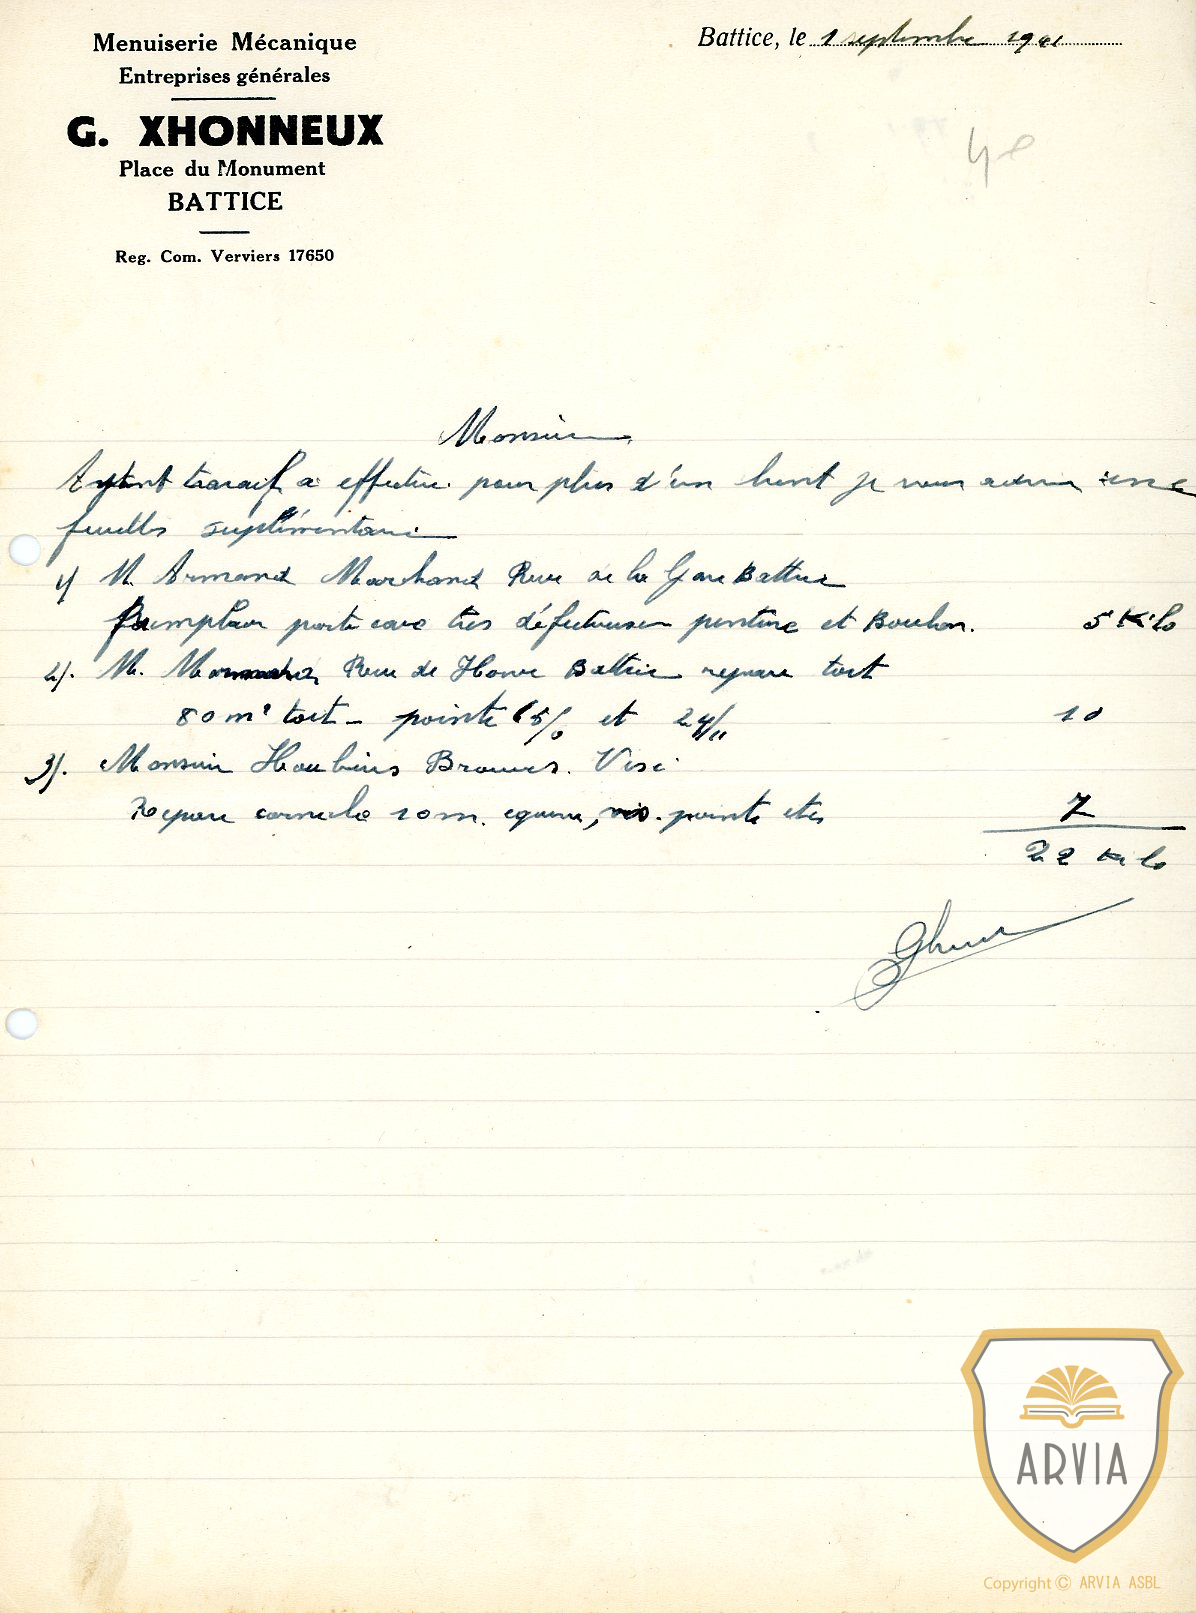 Menuiserie Mécanique
Entreprises générales
G. XHONNEUX
Place du Monument
BATTICE
Reg. Com. Verviers 17650
Battice, le 1 septembre 1941
Monsieur
Ayant travail a effectuer pour plus d'un je vous une
feuilles suplémentaire
1) M Armand Marchand Rue de la Gare Battice
porte cave très défectueuse penture et Boulon. 5 Kilo
2). M. Rue de Herve Battice repare toit
80 m² toit - pointe et 10
3). Monsieur Brouwers. Visé
Repare corniche 10 m. equerre, vis. pointe etc 7
22 Kilo
ARVIA
Copyright © ARVIA ASBL